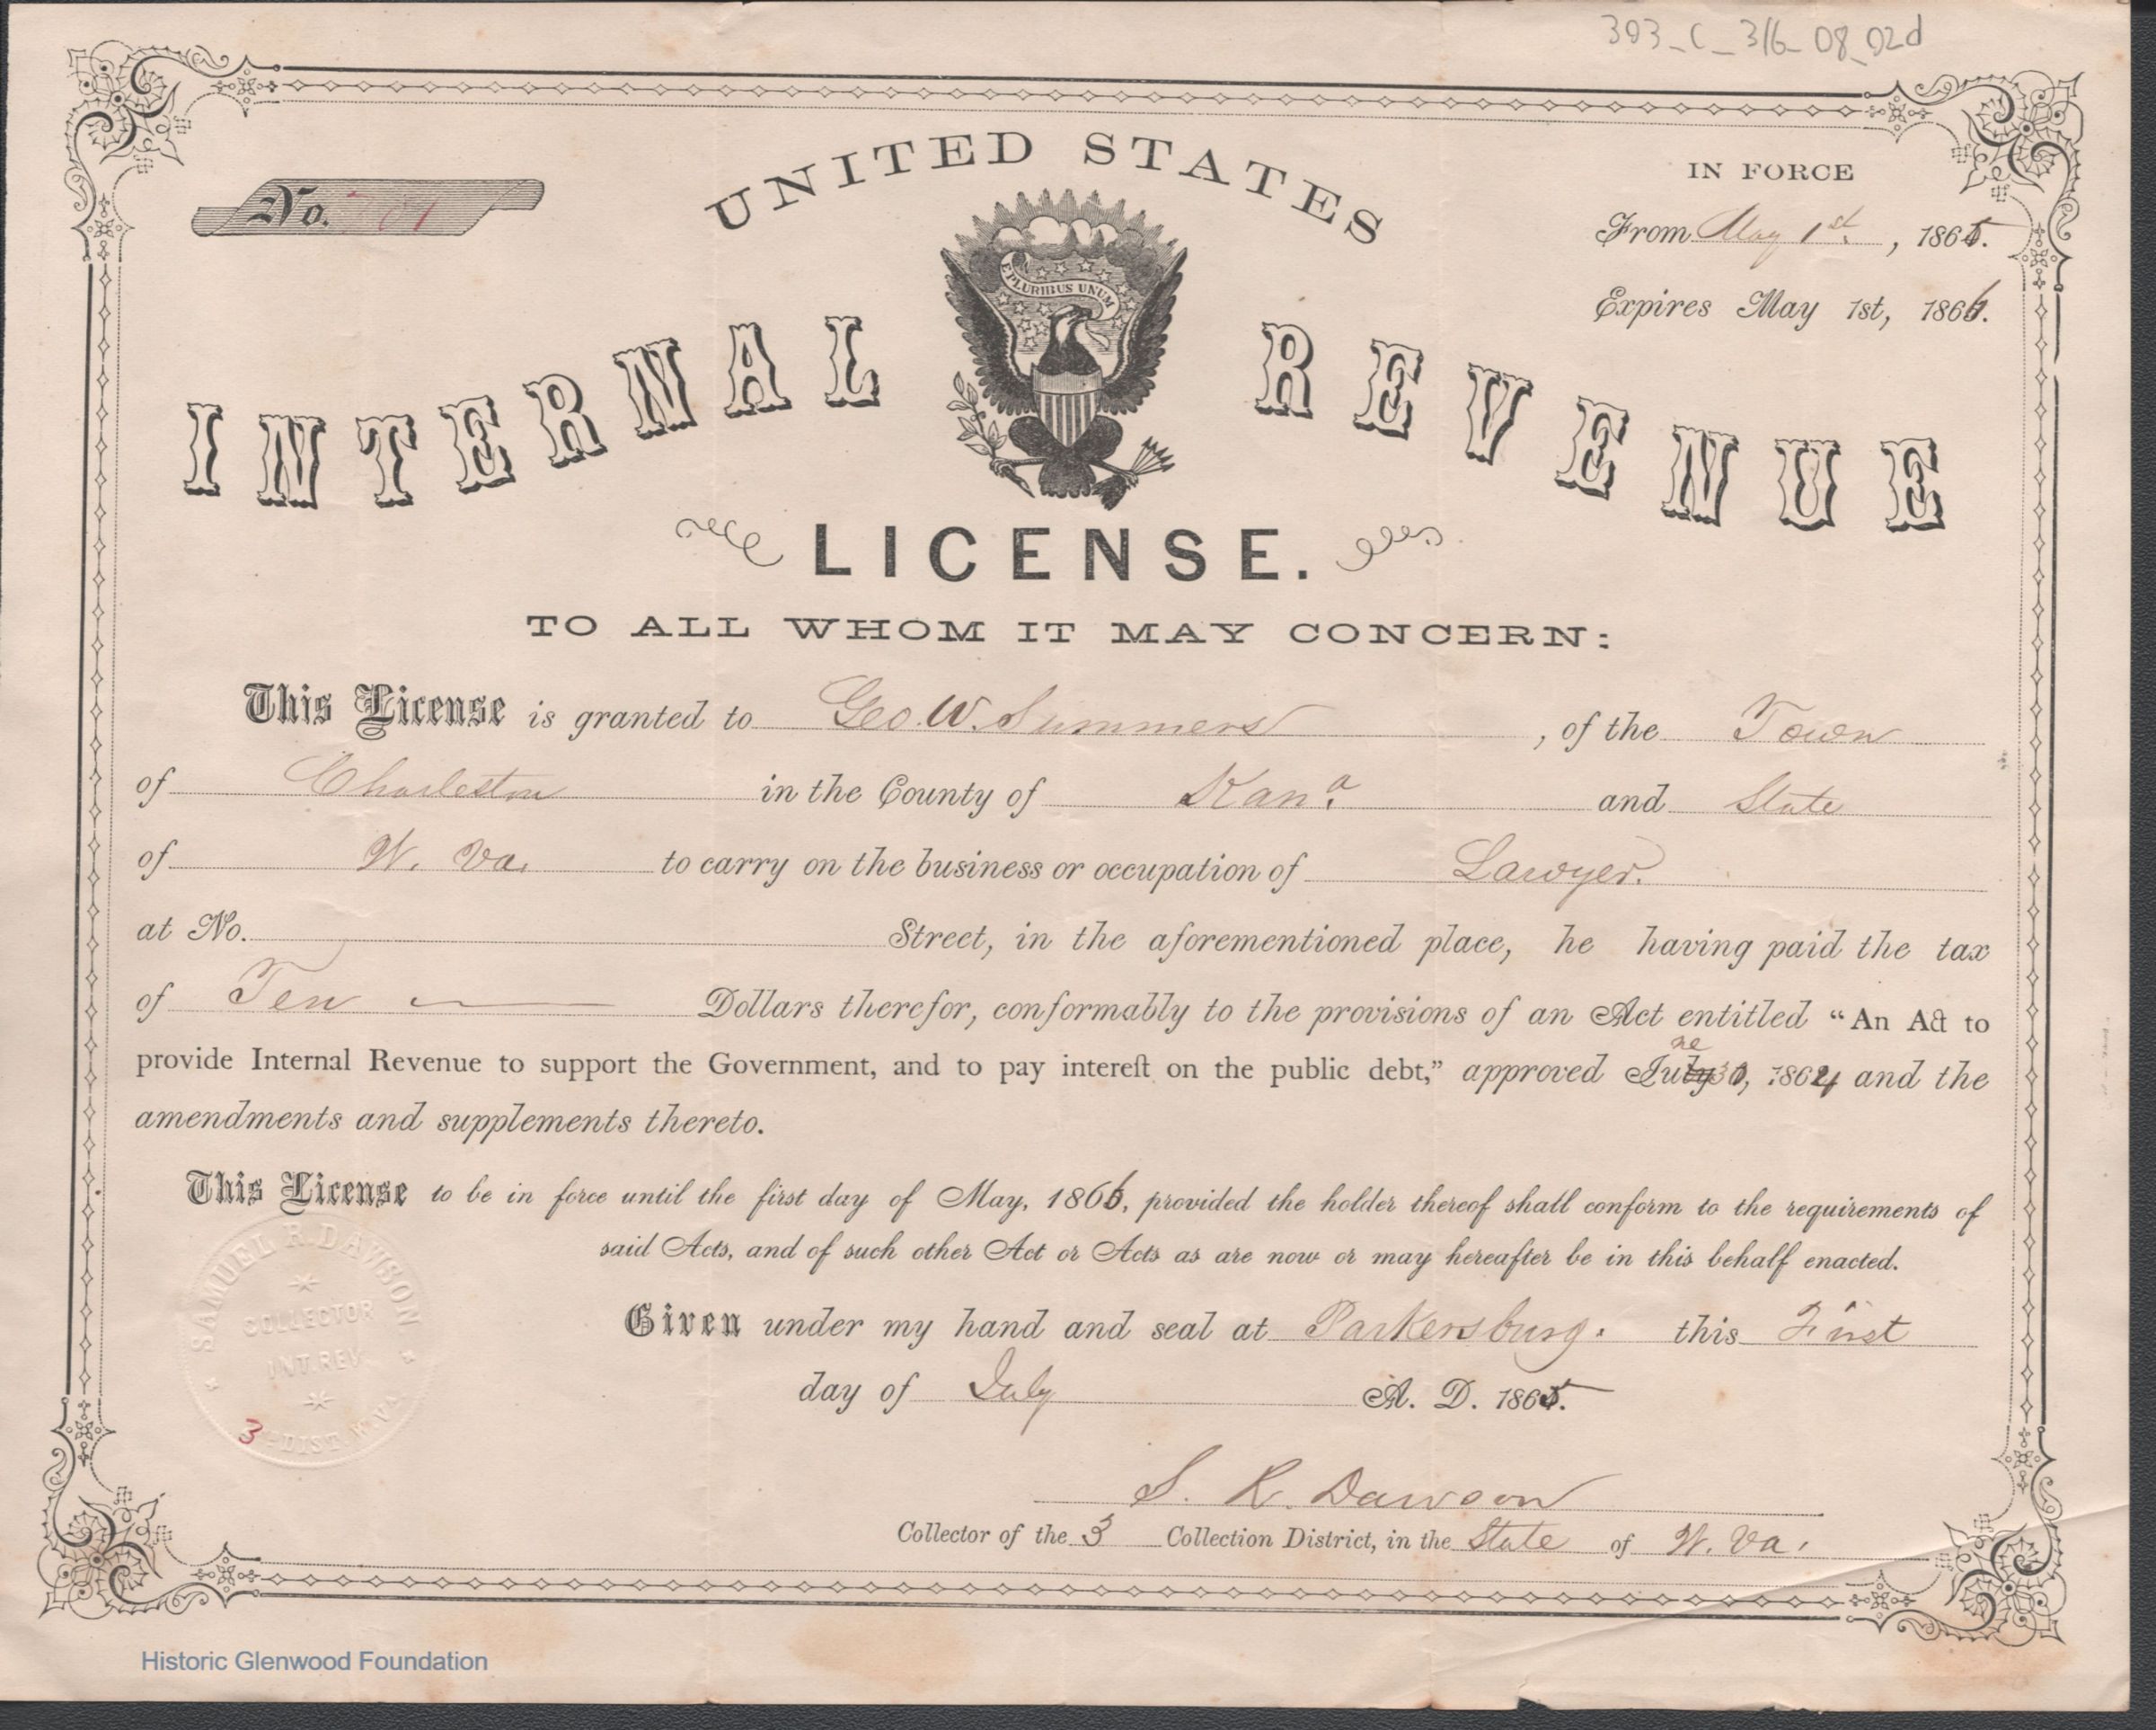 303_C_316_08_02d
No. 701
UNITED STATES
IN FORCE
From May 1st, 1865.
Expires May 1st, 1866.
E PLURIBUS UNUM
INTERNAL REVENUE
LICENSE.
TO ALL WHOM IT MAY CONCERN:
This License is granted to Geo. W. Summers, of the Town
of Charleston in the County of Kana. and State
of W. Va. to carry on the business or occupation of Lawyer.
at No. Street, in the aforementioned place, he having paid the tax
of Ten Dollars therefor, conformably to the provisions of an Act entitled "An Act to
provide Internal Revenue to support the Government, and to pay interest on the public debt," approved June 30, 1864 and the
amendments and supplements thereto.
This License to be in force until the first day of May, 1866, provided the holder thereof shall conform to the requirements of
said Acts, and of such other Act or Acts as are now or may hereafter be in this behalf enacted.
Given under my hand and seal at Parkersburg. this First
day of July A. D. 1865.
SAMUEL R. DAWSON
COLLECTOR
INT. REV
3 DIST. W. VA
S. R. Dawson
Collector of the 3 Collection District, in the State of W. Va.
Historic Glenwood Foundation